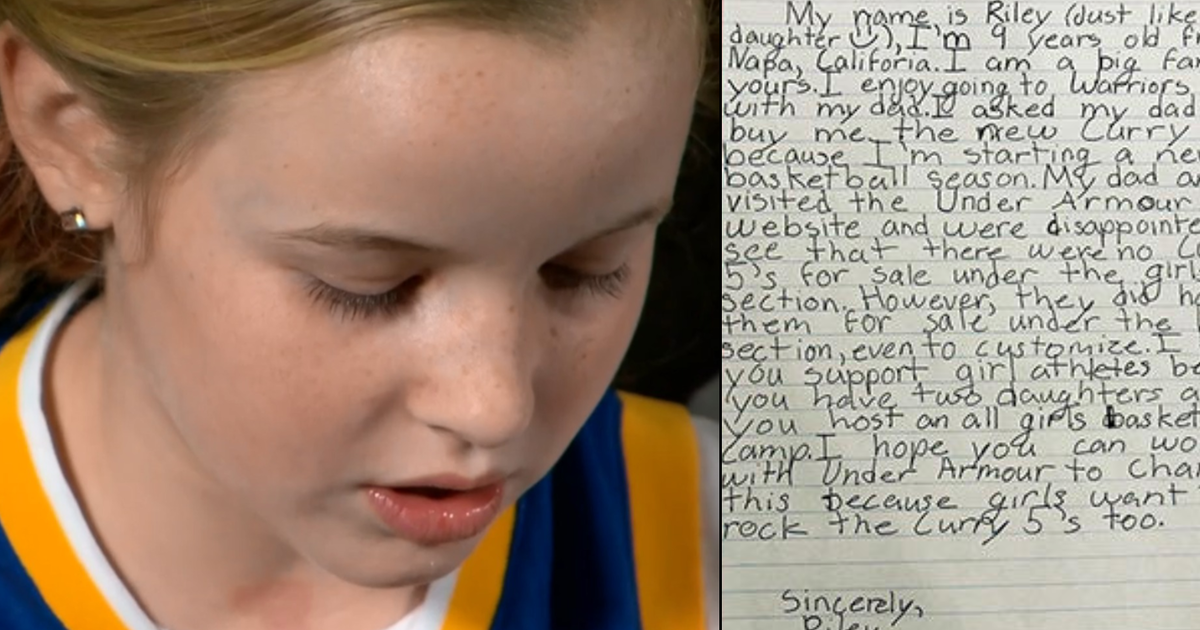 My name is Riley (Just like
daughter), I'm 9 years old
Napa, Califoria. I am a big
yours. I enjoy going to Warriors
with my dad. I asked my dad
buy me the new Curry
because I'm starting a
basketball season. My dad
visited the Under Armour
website and were
see that there were no
5's for sale under the
section. However, they did
them for sale under the
section, even to customize. I
you support girl athletes
you have two daughters
you host an all girls
camp. I hope you can
with Under Armour to
this because girls want
rock the Curry 5's too.
Sincerely,
Riley